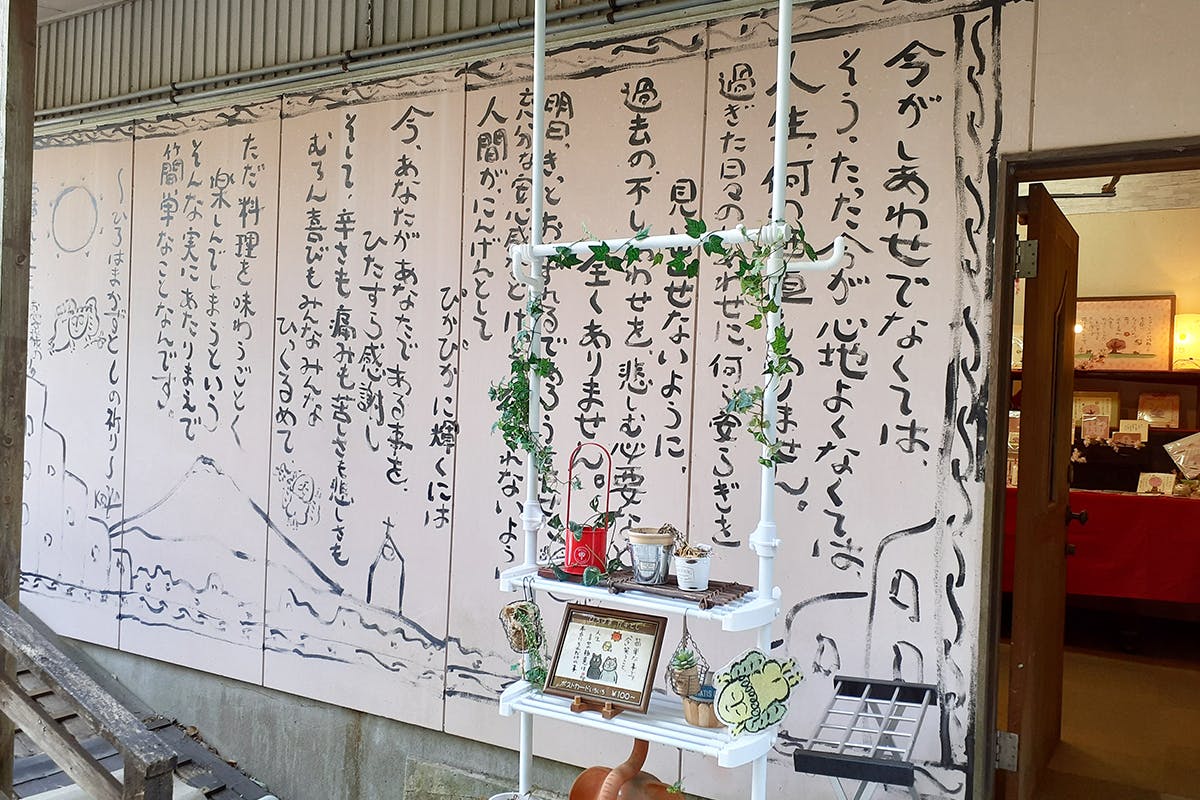 今がしあわせでなくては、
そう、たった今が心地よくなくては、
人生、何の価値もありません。
過ぎた日々のしあわせに、何ら安らぎさ
見出せないように、
過去の不しあわせを、悲しむ必要な
全くありません。
明日、きっとおとずれるであろうしあわせ
充分な実感と
れないよう
人間が、にんげんとして
ぴかぴかに輝くには
今、あなたがあなたである事を、
ひたすら感謝し
そして、辛さも痛みも苦しさも悲しさも
むろん喜びもみんなみんな
ひっくるめて
ただ料理を味わうごとく
楽しんでしまうという
そんな実にあたりまえで
簡単なことなんです。
〜ひろはまかずとしの祈り〜
ポストカードいろいろ ¥100〜